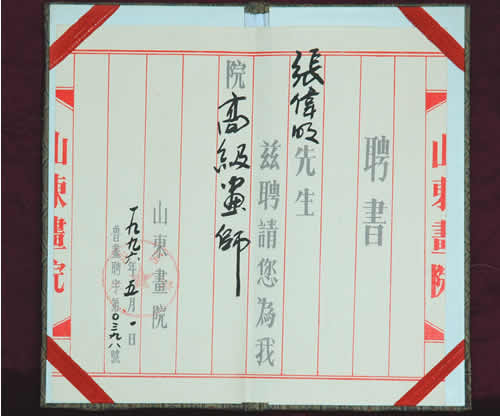 山東畫院
聘書
張偉明先生
茲聘請您為我
院高級畫師
山東畫院
一九九六年五月一日
魯畫聘字第0三九八號
山東畫院